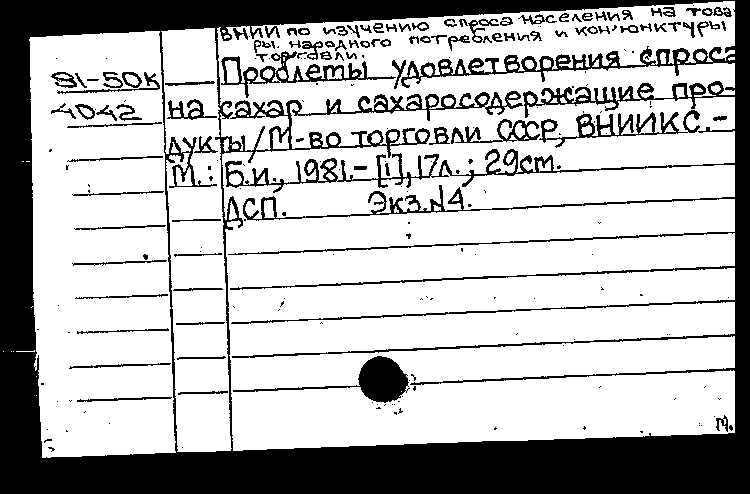 ВНИИ по изучению спроса населения на това
ры народного потребления и конъюнктуры
торговли.
81-50К
4042
Проблемы удовлетворения спроса
на сахар и сахаросодержащие про-
дукты/М-во торговли СССР, ВНИИКС.-
М.: Б.и., 1981.- [i], 17л.; 29см.
ДСП. Экз.N4.
м.